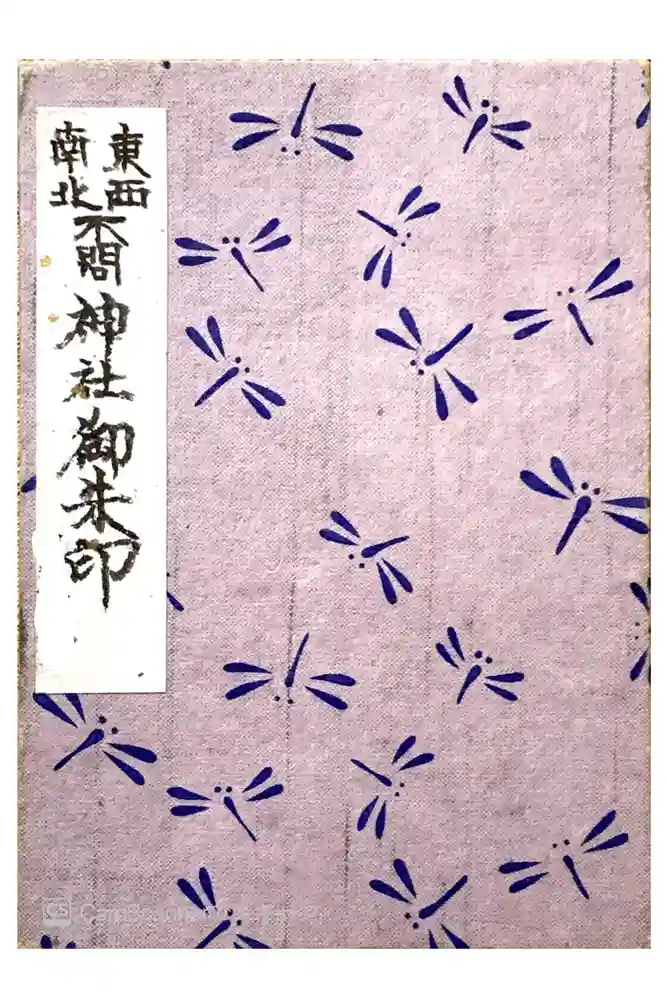 東西
南北
不問
神社御朱印
CS CamScanner